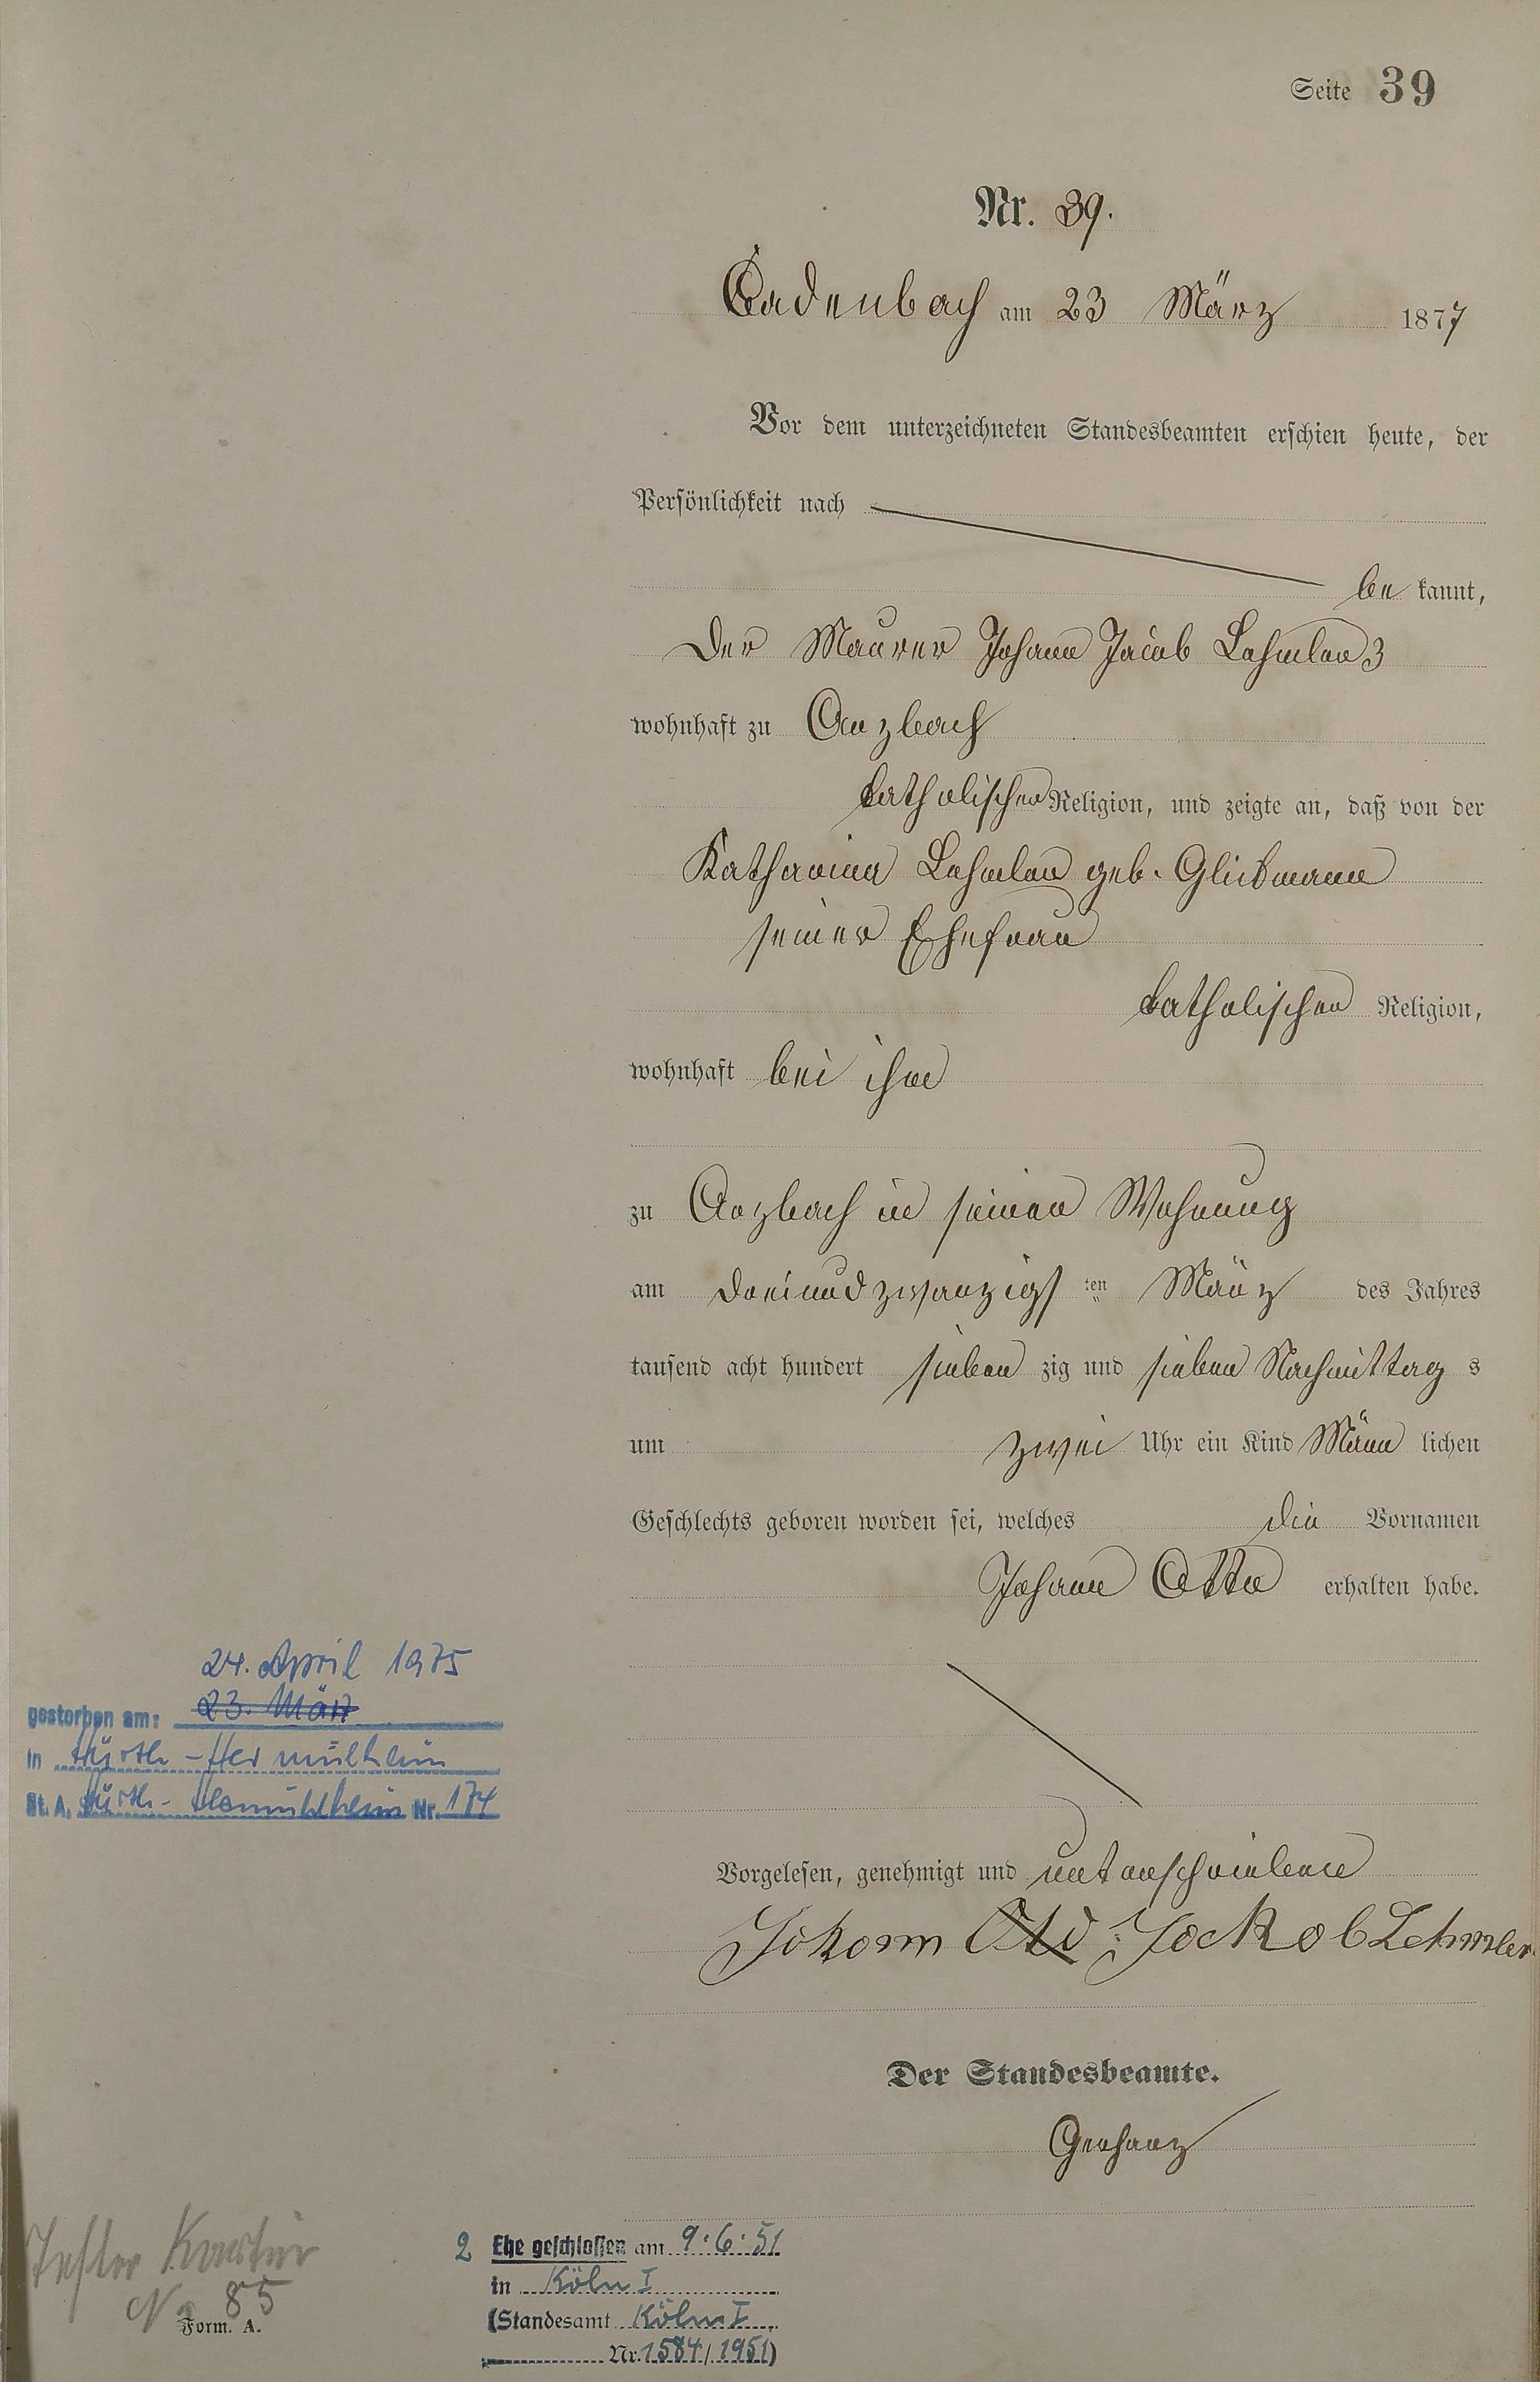 Seite 39
Nr. 39.
Cadenbach am 23 März 1877
Vor dem unterzeichneten Standesbeamten erschien heute, der
Persönlichkeit nach
be kannt,
der Maurer Johann Jacob Lehmler 3
wohnhaft zu Arzbach
katholischer Religion, und zeigte an, daß von der
Katharina Lehmler geb.
seiner Ehefrau
katholischer Religion,
wohnhaft bei ihm
zu Arzbach in seiner Wohnung
am dreiundzwanzigs ten März des Jahres
tausend acht hundert sieben zig und sieben Nachmittag s
um zwei Uhr ein Kind Männ lichen
Geschlechts geboren worden sei, welches die Vornamen
Johann Otto erhalten habe.
24. April 1975
gestorben am: 23. März
in Hürth - Hermülheim
St. A. Hürth - Hermülheim Nr. 174
Vorgelesen, genehmigt und unterschrieben
Johann Otto Jackob Lehmler
Der Standesbeamte.
Gerharz
No 85
Form. A.
2 Ehe geschlossen am 9.6.51
in Köln I
(Standesamt Köln I
Nr. 1584/1951)